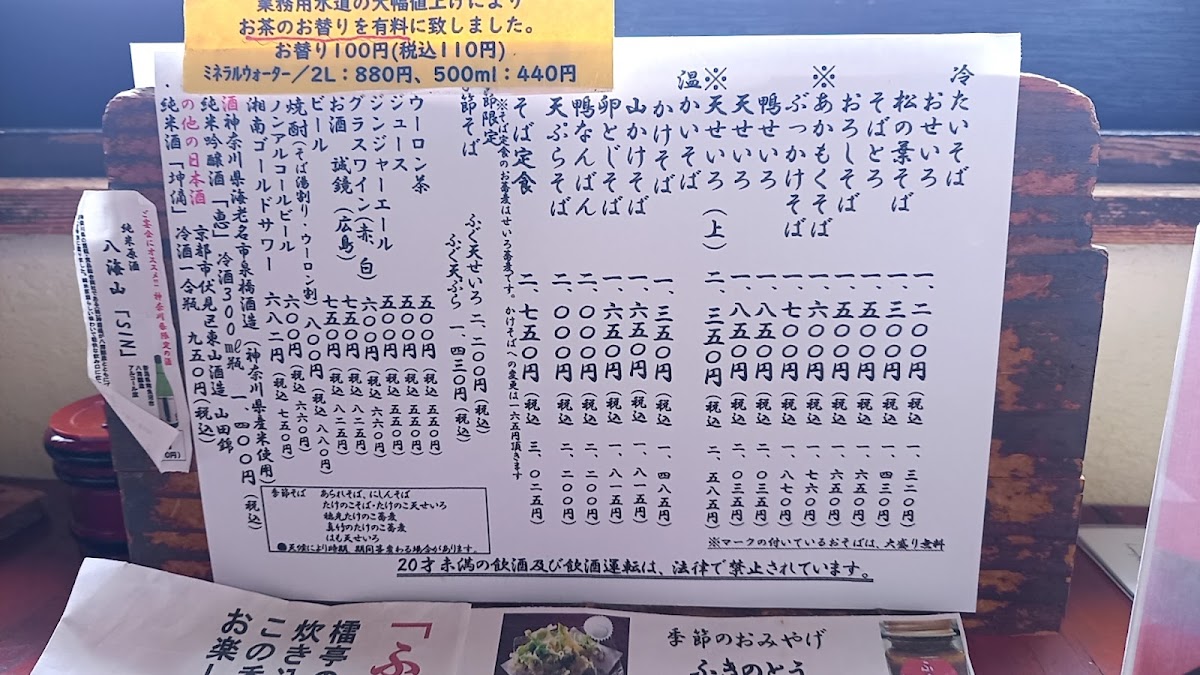 業務用水道の大幅値上げにより
お茶のお替りを有料に致しました。
お替り100円(税込110円)
ミネラルウォーター/2L:880円、500ml:440円
冷たいそば
おせいろ 一、二〇〇円(税込 一、三二〇円)
松の葉そば 一、三〇〇円(税込 一、四三〇円)
そばとろ 一、五〇〇円(税込 一、六五〇円)
おろしそば 一、五〇〇円(税込 一、六五〇円)
※あかもくそば 一、六〇〇円(税込 一、七六〇円)
ぶっかけそば 一、七〇〇円(税込 一、八七〇円)
鴨せいろ 一、八五〇円(税込 二、〇三五円)
天せいろ 一、八五〇円(税込 二、〇三五円)
※天せいろ(上) 二、三五〇円(税込 二、五八五円)
温かいそば
かけそば 一、三五〇円(税込 一、四八五円)
山かけそば 一、六五〇円(税込 一、八一五円)
卵とじそば 一、六五〇円(税込 一、八一五円)
鴨なんばん 二、〇〇〇円(税込 二、二〇〇円)
天ぷらそば 二、〇〇〇円(税込 二、二〇〇円)
そば定食 二、七五〇円(税込 三、〇二五円)
※そば定食のお蕎麦はせいろ蕎麦です。かけそばへの変更は一六五円頂きます
節限定 ふぐ天せいろ 二、二〇〇円(税込)
節そば ふぐ天ぷら 一、四三〇円(税込)
ウーロン茶 五〇〇円(税込 五五〇円)
ジュース 五〇〇円(税込 五五〇円)
ジンジャーエール 五〇〇円(税込 五五〇円)
グラスワイン(赤、白) 六〇〇円(税込 六六〇円)
お酒 誠鏡(広島) 七五〇円(税込 八二五円)
ビール 七五〇円(税込 八二五円)
焼酎(そば湯割り・ウーロン割) 八〇〇円(税込 八八〇円)
ノンアルコールビール 六〇〇円(税込 六六〇円)
湘南ゴールドサワー 六八二円(税込 七五〇円)
酒 神奈川県海老名市泉橋酒造(神奈川県産米使用)
純米吟醸酒「恵」 冷酒300㎖瓶 一、四〇〇円(税込)
の他の日本酒 京都市伏見区東山酒造 山田錦
純米酒「坤滴」 冷酒一合瓶 九五〇円(税込)
季節そば あられそば、にしんそば
たけのこそば・たけのこ天せいろ
穂先たけのこ蕎麦
真竹のたけのこ蕎麦
はも天せいろ
●天候により時期、期間等変わる場合があります。
※マークの付いているおそばは、大盛り無料
20才未満の飲酒及び飲酒運転は、法律で禁止されています。
ご宴会にオススメ!! 神奈川県限定の酒
純米原酒
八海山 『SIN』
「ふ
檑亭の
炊き込
この香
お楽し
季節のおみやげ
ふきのとう